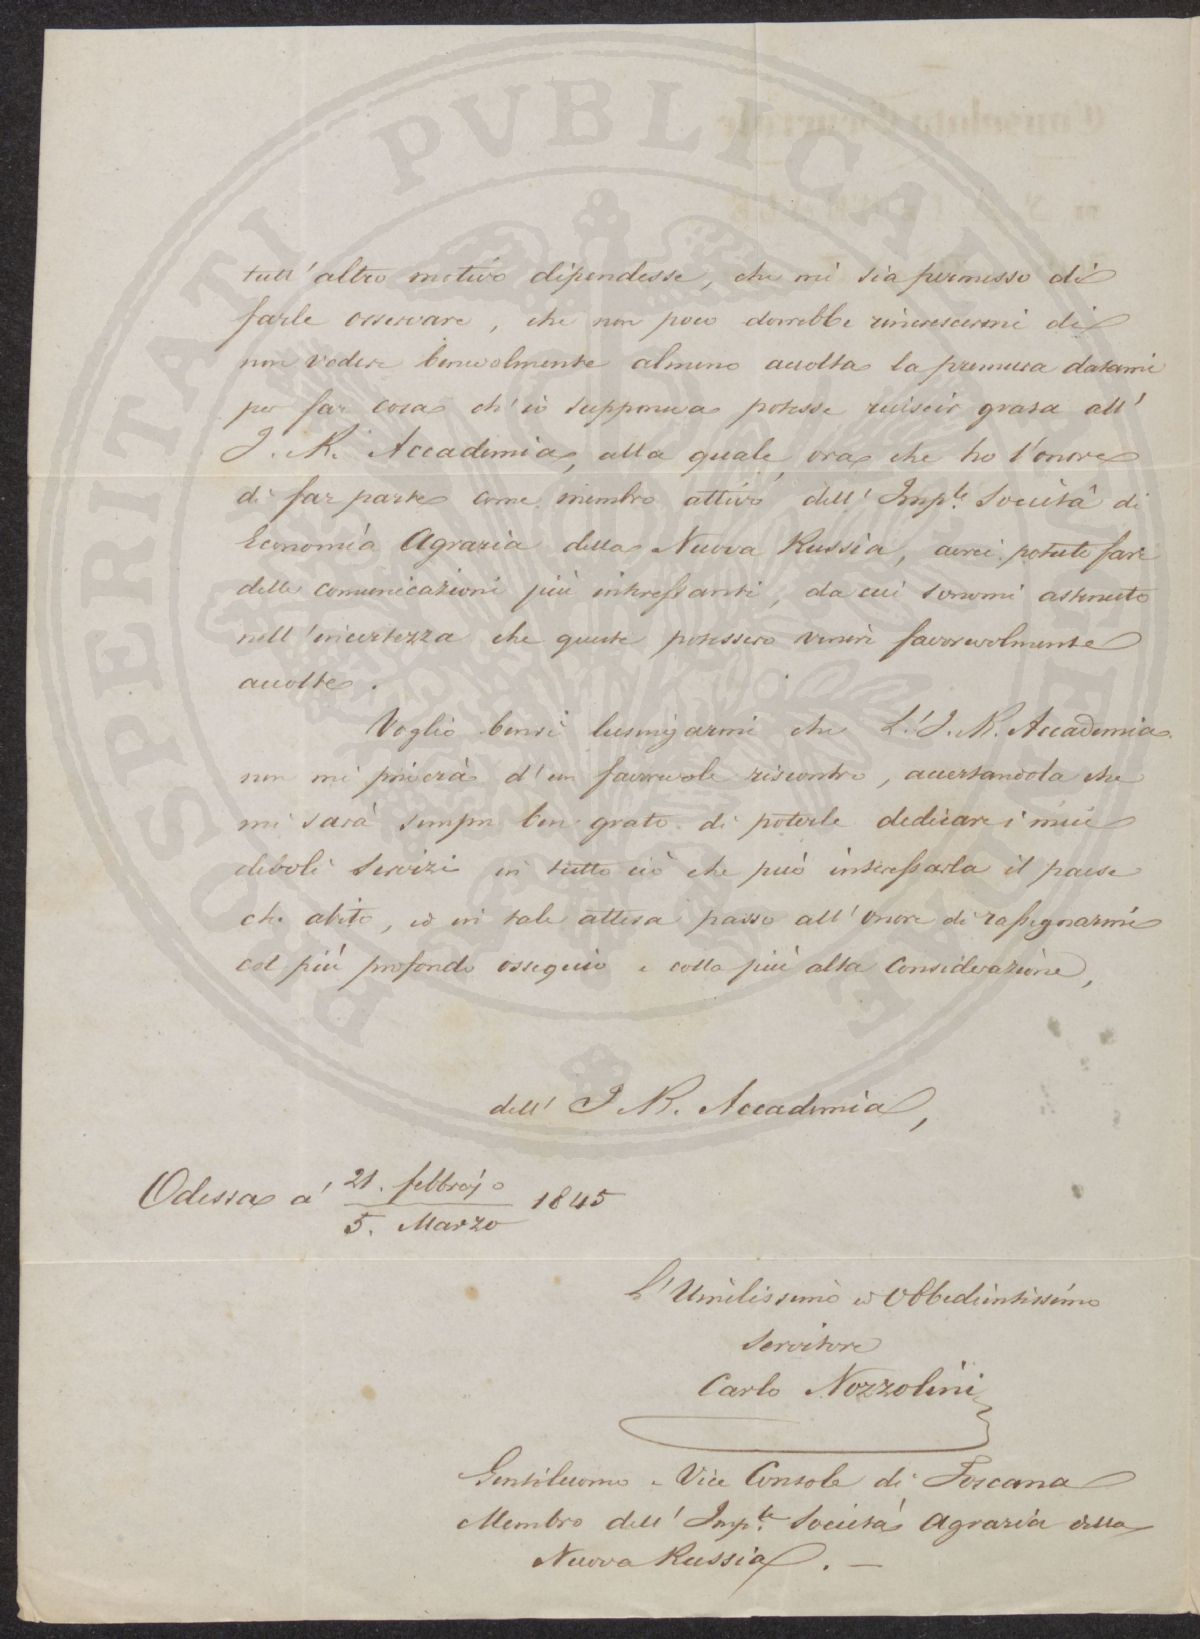 tutt'altro motivo dipendesse, che mi sia permesso di
farle osservare, che non poco dovrebbe rincrescermi di
non vedere benevolmente almeno accolta la premura datami
per far cosa ch'io supponeva potesse riuscir grata all'
I. R. Accademia, alla quale, ora che ho l'onore
di far parte come membro attivo dell'Imp.le Società di
Economia Agraria della Nuova Russia, avrei potuto fare
delle comunicazioni più interessanti, da cui sonomi astenuto
nell'incertezza che queste potessero venire favorevolmente
accolte.
Voglio bensì lusingarmi che L'I. R. Accademia
non mi priverà d'un favorevole riscontro, accertandola che
mi sarà sempre ben grato di poterle dedicare i miei
deboli servizi in tutto ciò che può interessarla il paese
che abito, ed in tale attesa passo all'onore di rassegnarmi
col più profondo ossequio e colla più alta considerazione,
dell'I. R. Accademia,
Odessa a' 21. febbrajo / 5. Marzo 1845
L'Umilissimo ed Obbedientissimo
Servitore
Carlo Nozzolini
Gentiluomo e Vice Console di Toscana
Membro dell'Imp.le Società Agraria della
Nuova Russia. —
PROSPERITATI PUBLICAE AUGENDAE